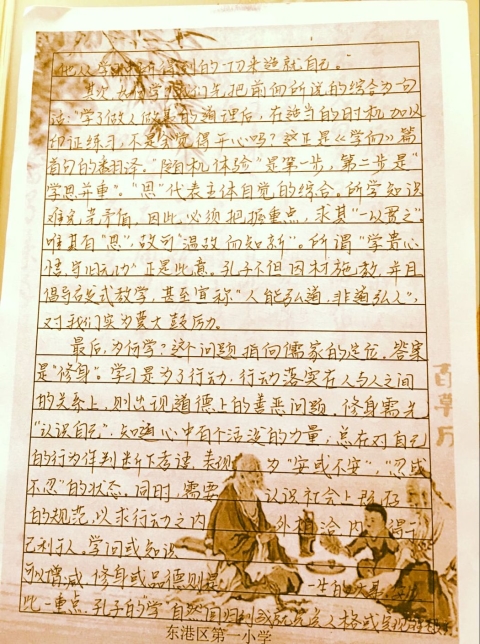 他从学习中得到的一切来造就自己。"
其次，如何学？我们先把前面所说的综合为一句
话："学了做人做事的道理后，在适当的时机加以
印证练习，不是会觉得开心吗？"这正是《学而》篇
首句的翻译。"随机体验"是第一步，第二步是"
学思并重"。"思"代表主体自觉的综合。所学知识
难免先矛盾，因此，必须把握重点，求其"一以贯之"。
唯其有"思"，故可"温故而知新"。所谓"学贵心
悟，守旧无功"正是此意。孔子不但因材施教，并且
倡导启发式教学，甚至宣称"人能弘道，非道弘人"，
对我们实为莫大鼓励。
最后，为何学？这个问题指向儒家的定位，答案
是"修身"。学习是为了行动，行动落实在人与人之间
的关系上，则出现道德上的善恶问题。修身需先
"认识自己"，知道心中有个活泼的力量，总在对自己
的行为作判断下考语，表现为"安或不安"，"忍或
不忍"的状态。同时，需要认识社会上群存
的规范，以求行动之内外相洽，内得于
己利于人。学问或知识
可以增减，修身或品德则是一生的大事
此一重点，孔子的"学"自然回归到成就完美人格
百草厅
东港区第一小学